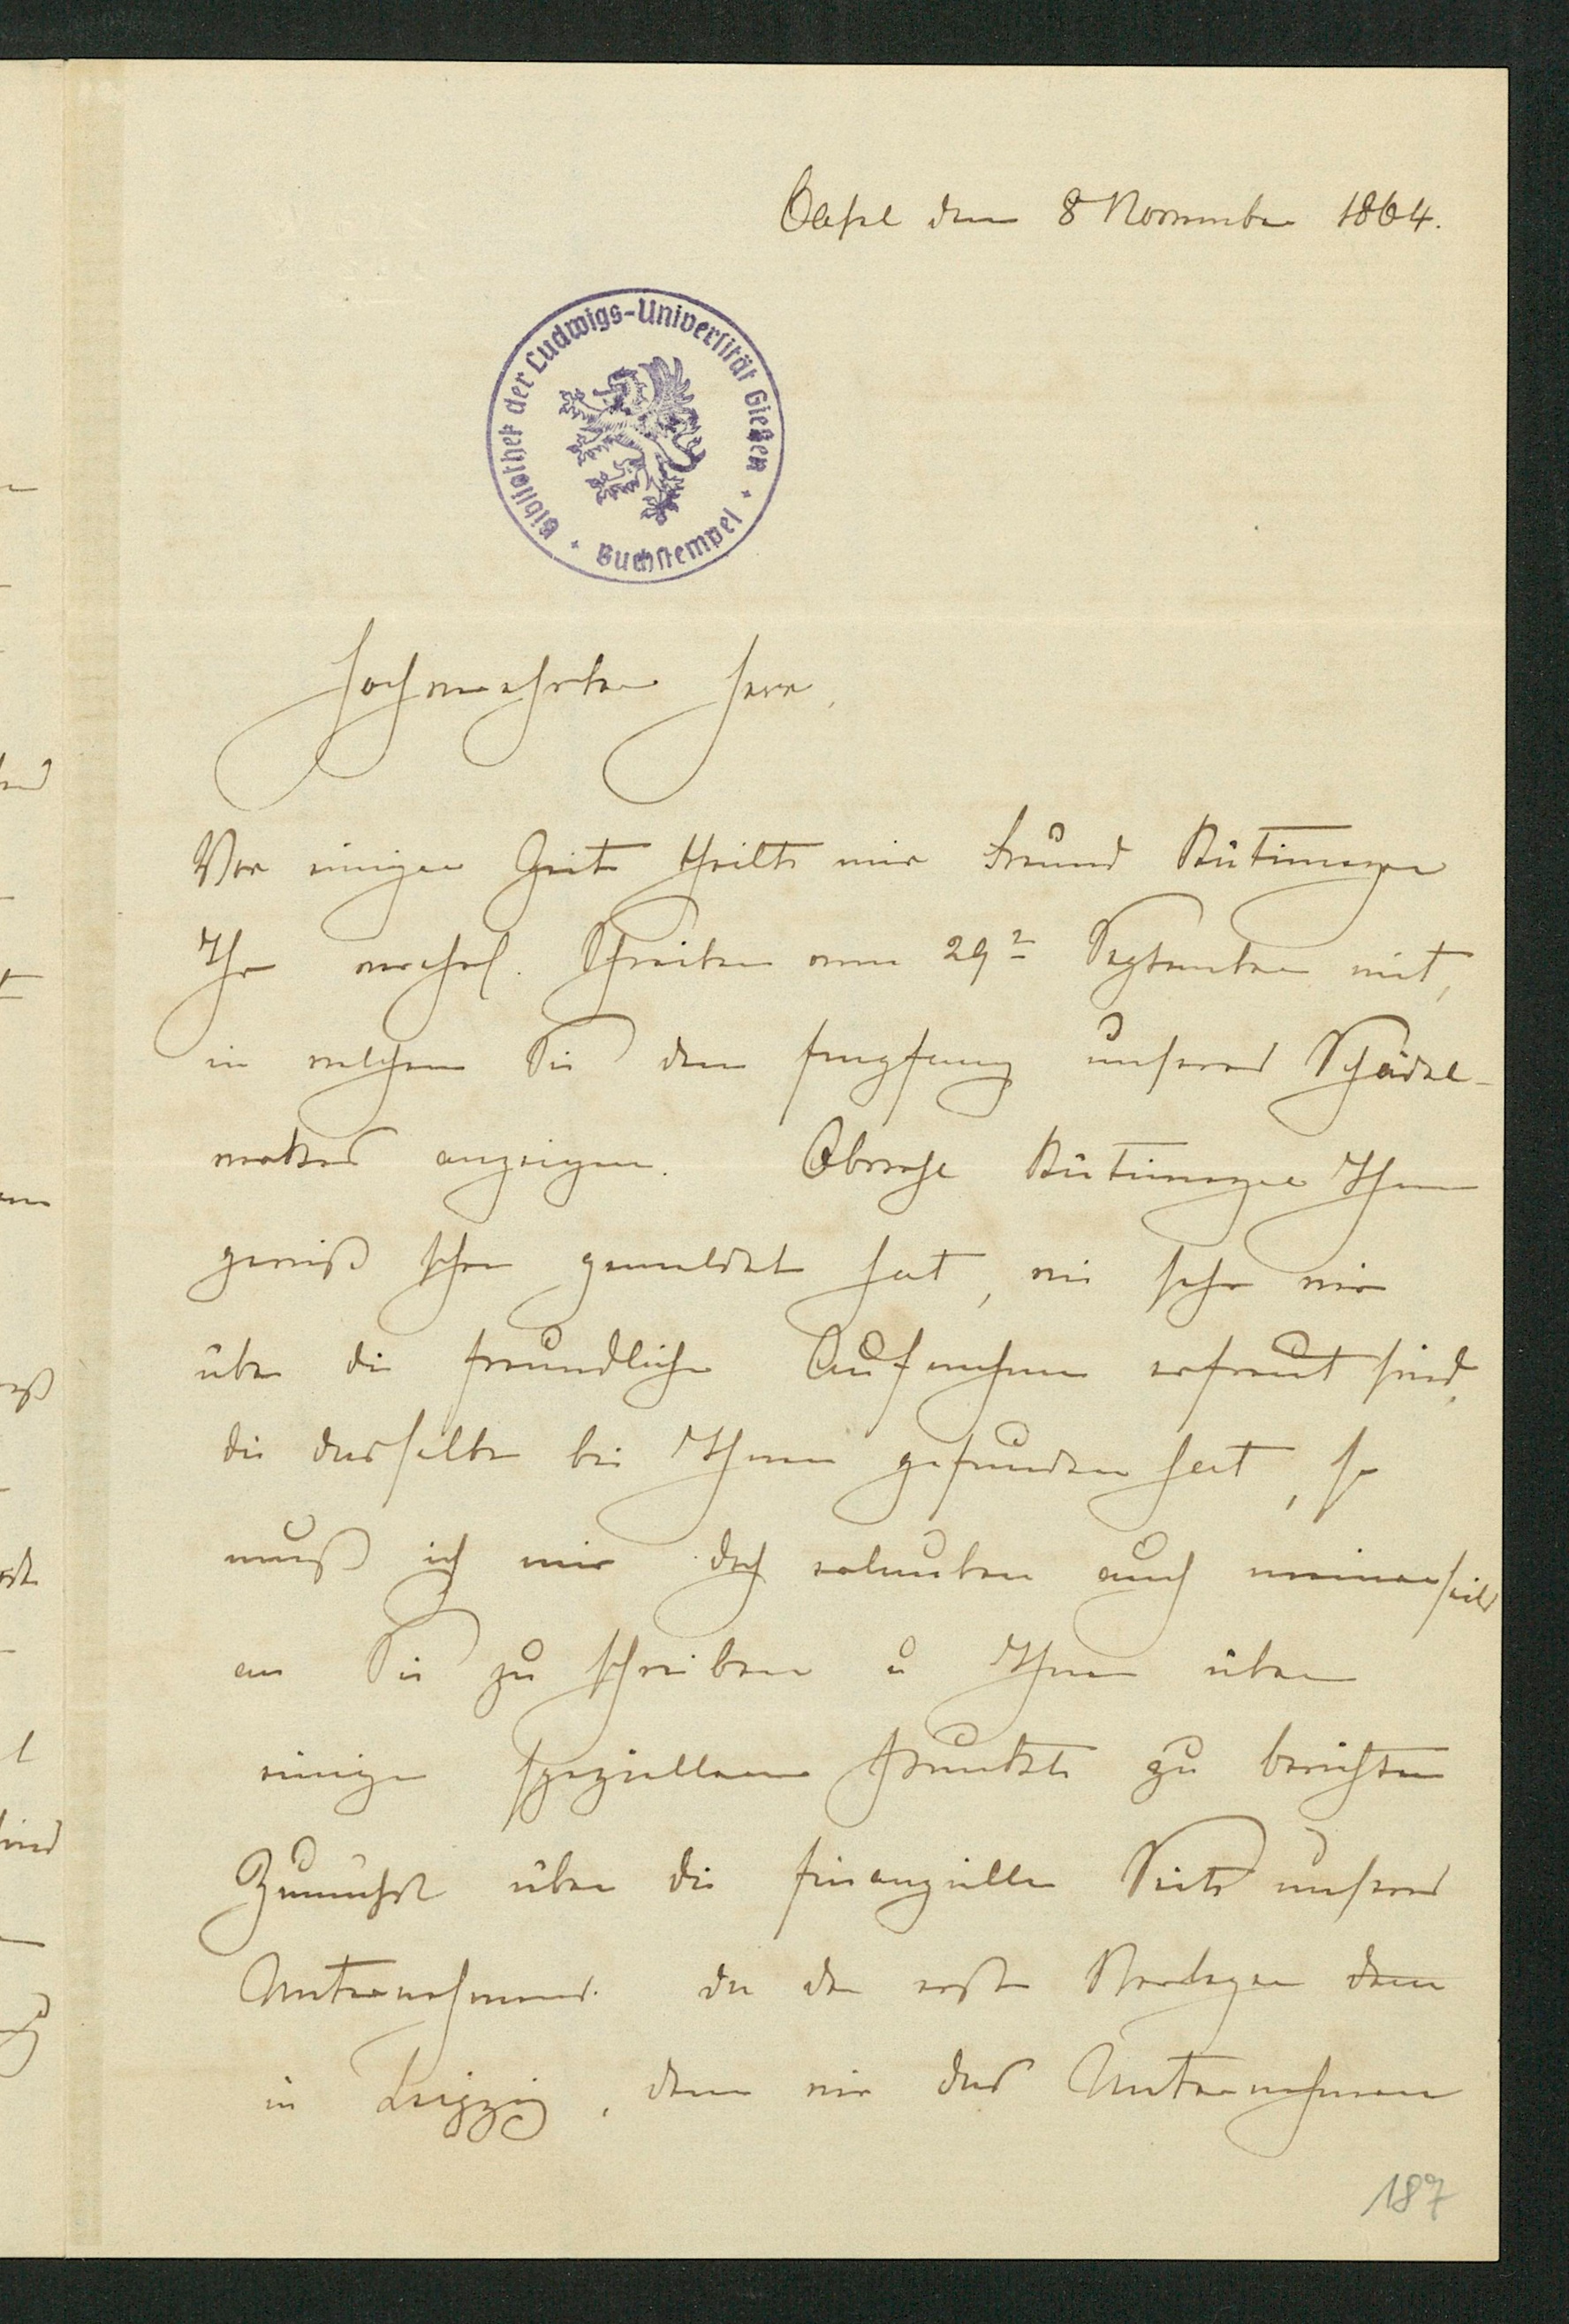 Basel den 8 November 1864.
Bibliothek der Ludwigs-Universität Gießen
Buchstempel
Hochverehrter Herr,
Vor einiger Zeit theilte mir Freund Rütimeyer
Ihr verehrl. Schreiben vom 29t September mit,
in welchem Sie den Empfang unseres Schädel-
werkes anzeigen. Obwohl Rütimeyer Ihnen
gewiß schon gemeldet hat, wie sehr wir
über die freundliche Aufnahme erfreut sind,
die dasselbe bei Ihnen gefunden hat, so
muß ich mir doch erlauben auch meinerseits
an Sie zu schreiben u Ihnen über
einige speziellere Punkte zu berichten
Zunächst über die finanzielle Seite unseres
Unternehmens. da der erste Verleger dem
in Leipzig, dem wir das Unternehmen
187